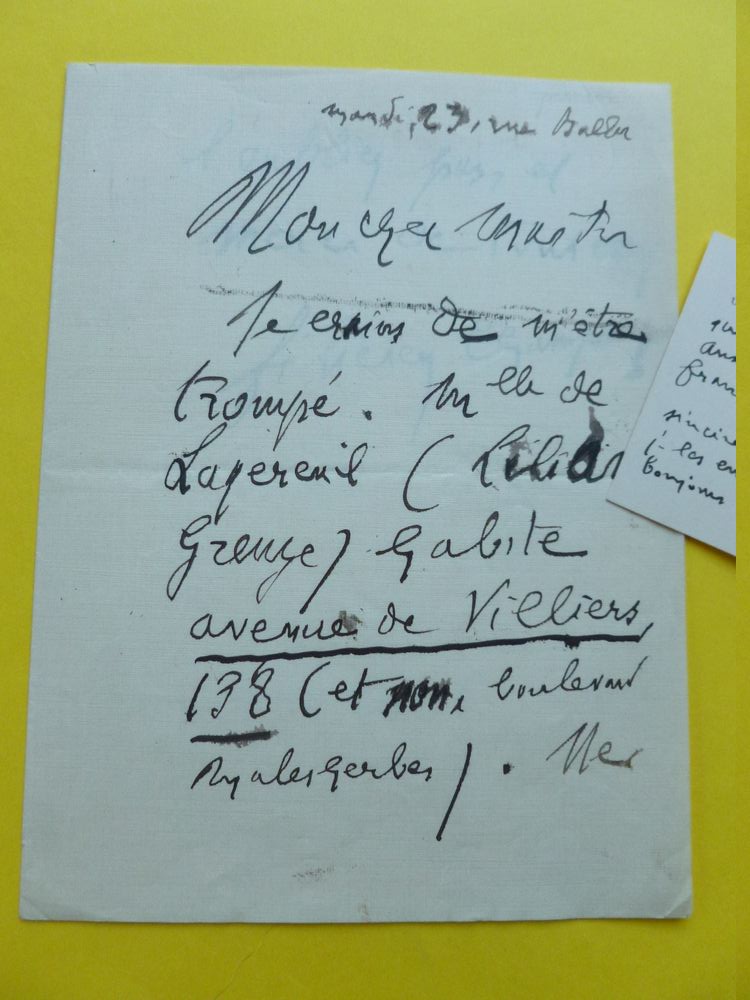 mardi, 23, rue Ballu
Mon cher maître
Je crains de m'être
trompé. Mlle de
Lapereuil (Liliane
Greuze) habite
avenue de Villiers,
138 (et non, boulevard
Malesherbes). Mer
sincère
bonjours